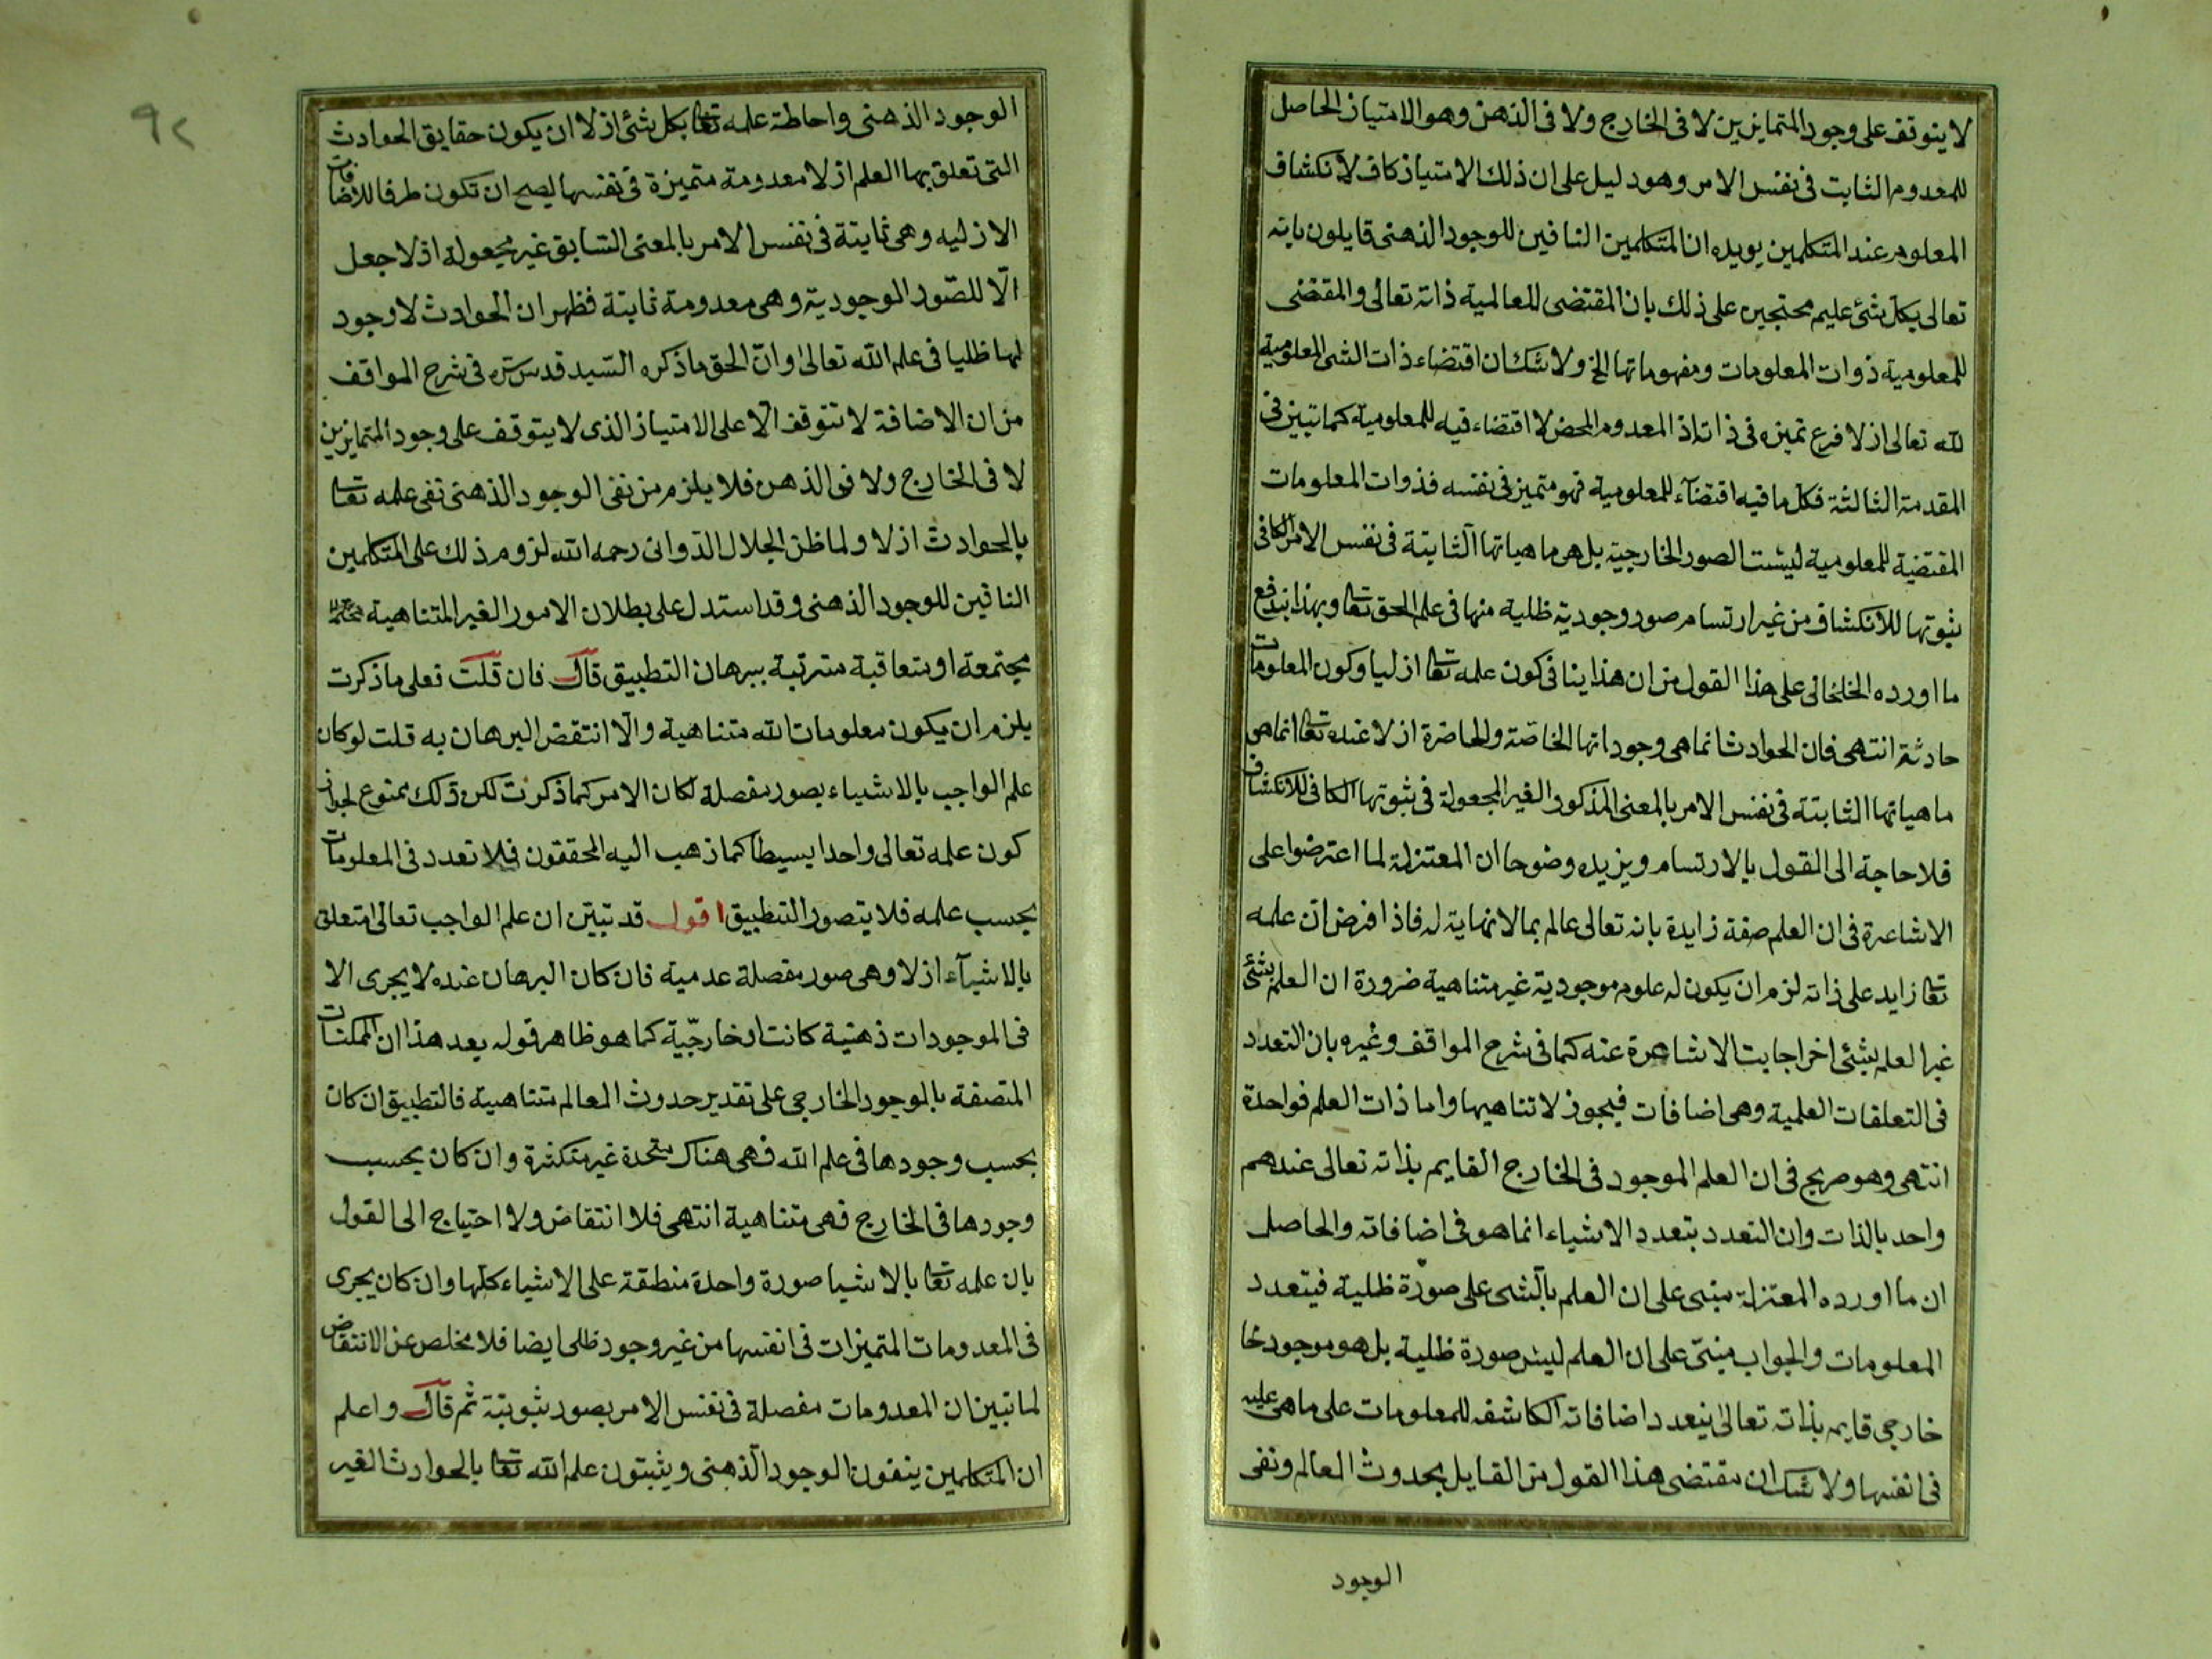 لا يتوقف على وجود المتمايزين لا فى الخارج ولا فى الذهن وهو الامتياز الحاصل
للمعدوم الثابت فى نفس الامر وهو دليل على ان ذلك الامتياز كاف لانكشاف
المعلوم عند المتكلمين يويده ان المتكلمين النافين للوجود الذهنى قايلون بانه
تعالى بكل شئ عليم محتجين على ذلك بان المقتضى للعالمية ذاته تعالى والمقتضى
للمعلومية ذوات المعلومات ومفهوماتها الخ ولا شك ان اقتضاء ذات الشى المعلومية
لله تعالى ازلا فرع تميزه فى ذاته اذ المعدوم المحض لا اقتضاء فيه للمعلومية كما تبين فى
المقدمة الثالثة فكل ما فيه اقتضآء للمعلومية فهو متميز فى نفسه فذوات المعلومات
المقتضية للمعلومية ليست الصور الخارجية بل هى ماهياتها الثابتة فى نفس الامر الكافى
ثبوتها للانكشاف من غير ارتسام صور وجودية ظلية منها فى علم الحق تعا وبهذا يندفع
ما اورده الخلخالى على هذا القول من ان هذا ينافى كون علمه تعا ازليا وكون المعلومات
حادثة انتهى فان الحوادث انما هى وجوداتها الخاصة والحاضرة ازلا عنده تعا انما هى
ماهياتها الثابتة فى نفس الامر بالمعنى المذكور الغير المجعولة فى ثبوتها الكافى للانكشاف
فلا حاجة الى القول بالارتسام ويزيده وضوحا ان المعتزلة لما اعترضوا على
الاشاعرة فى ان العلم صفة زايدة بانه تعالى عالم بما لا نهاية له فاذا فرض ان علمه
تعا زايد على ذاته لزم ان يكون له علوم موجودية غير متناهية ضرورة ان العلم بشئ
غير العلم بشئ اخر اجابت الاشاعرة عنه كما فى شرح المواقف وغيره بان التعدد
فى التعلقات العلمية وهى اضافات فيجوز لا تناهيها واما ذات العلم فواحدة
انتهى وهو صريح فى ان العلم الموجود فى الخارج القايم بذاته تعالى عندهم
واحد بالذات وان التعدد بتعدد الاشياء انما هو فى اضافاته والحاصل
ان ما اورده المعتزلة مبنى على ان العلم بالشى على صورة ظلية فيتعدد
المعلومات والجواب مبنى على ان العلم ليس صورة ظلية بل هو موجود خا
خارجى قايم بذاته تعالى يتعدد اضافاته الكاشفه للمعلومات على ما هى عليه
فى انفسها ولا شك ان مقتضى هذا القول من القايل بحدوث العالم ونفى
الوجود
٩٢
الوجود الذهنى واحاطة علمه تعا بكل شئ ازلا ان يكون حقايق الحوادث
التى تعلق بها العلم ازلا معدومة متميزة فى نفسها ليصح ان تكون طرفا للاضافات
الازليه وهى ثابتة فى نفس الامر بالمعنى السابق غير مجعولة اذ لا جعل
الّا للصّور الوجودية وهى معدومة ثابتة فظهر ان الحوادث لا وجود
لها ظليا فى علم الله تعالى وانّ الحق ما ذكره السّيد قدس سره فى شرح المواقف
من ان الاضافة لا تتوقف الّا على الامتياز الذى لا يتوقف على وجود المتمايزين
لا فى الخارج ولا فى الذهن فلا يلزم من نفى الوجود الذهنى نفى علمه تعا
بالحوادث ازلا ولما ظن الجلال الدوانى رحمه الله لزوم ذلك على المتكلمين
النافين للوجود الذهنى وقد استدل على بطلان الامور الغير المتناهية
مجتمعة او متعاقبة مترتبة ببرهان التطبيق قال فان قلت فعلى ما ذكرت
يلزم ان يكون معلومات الله متناهية والّا انتقض البرهان به قلت لو كان
علم الواجب بالاشياء بصور مفصلة لكان الامر كما ذكرت لكن ذلك ممنوع لجواز
كون علمه تعالى واحدا بسيطا كما ذهب اليه المحققون فلا تعدد فى المعلومات
بحسب علمه فلا يتصور التطبيق اقول قد تبيّن ان علم الواجب تعالى متعلق
بالاشيآء ازلا وهى صور مفصلة عدمية فان كان البرهان عنده لا يجرى الا
فى الموجودات ذهنية كانت او خارجيّة كما هو ظاهر قوله بعد هذا ان الممكنات
المتصفة بالوجود الخارجى على تقدير حدوث العالم متناهية فالتطبيق ان كان
بحسب وجودها فى علم الله فهى هناك متحدة غير متكثرة وان كان بحسب
وجودها فى الخارج فهى متناهية انتهى فلا انتقاض ولا احتياج الى القول
بان علمه تعا بالاشيا صورة واحدة منطبقة على الاشياء كلها وان كان يجرى
فى المعدومات المتميزات فى انفسها من غير وجود ظلى ايضا فلا مخلص عن الانتقاض
لما تبين ان المعدومات مفصلة فى نفس الامر بصور ثبوتيّة ثم قال واعلم
ان المتكلمين ينفون الوجود الذهنى ويثبتون علم الله تعا بالحوادث الغير